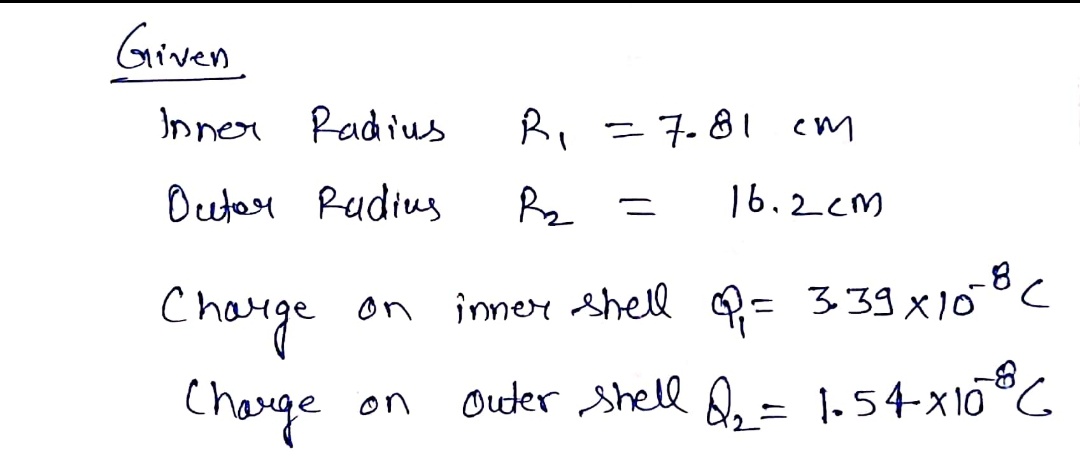 Given
Inner Radius R₁ = 7.81 cm
Outer Radius R₂ = 16.2cm
Charge on inner shell Q₁ = 3.39 × 10⁻⁸ C
Charge on outer shell Q₂ = 1.54 × 10⁻⁸ C